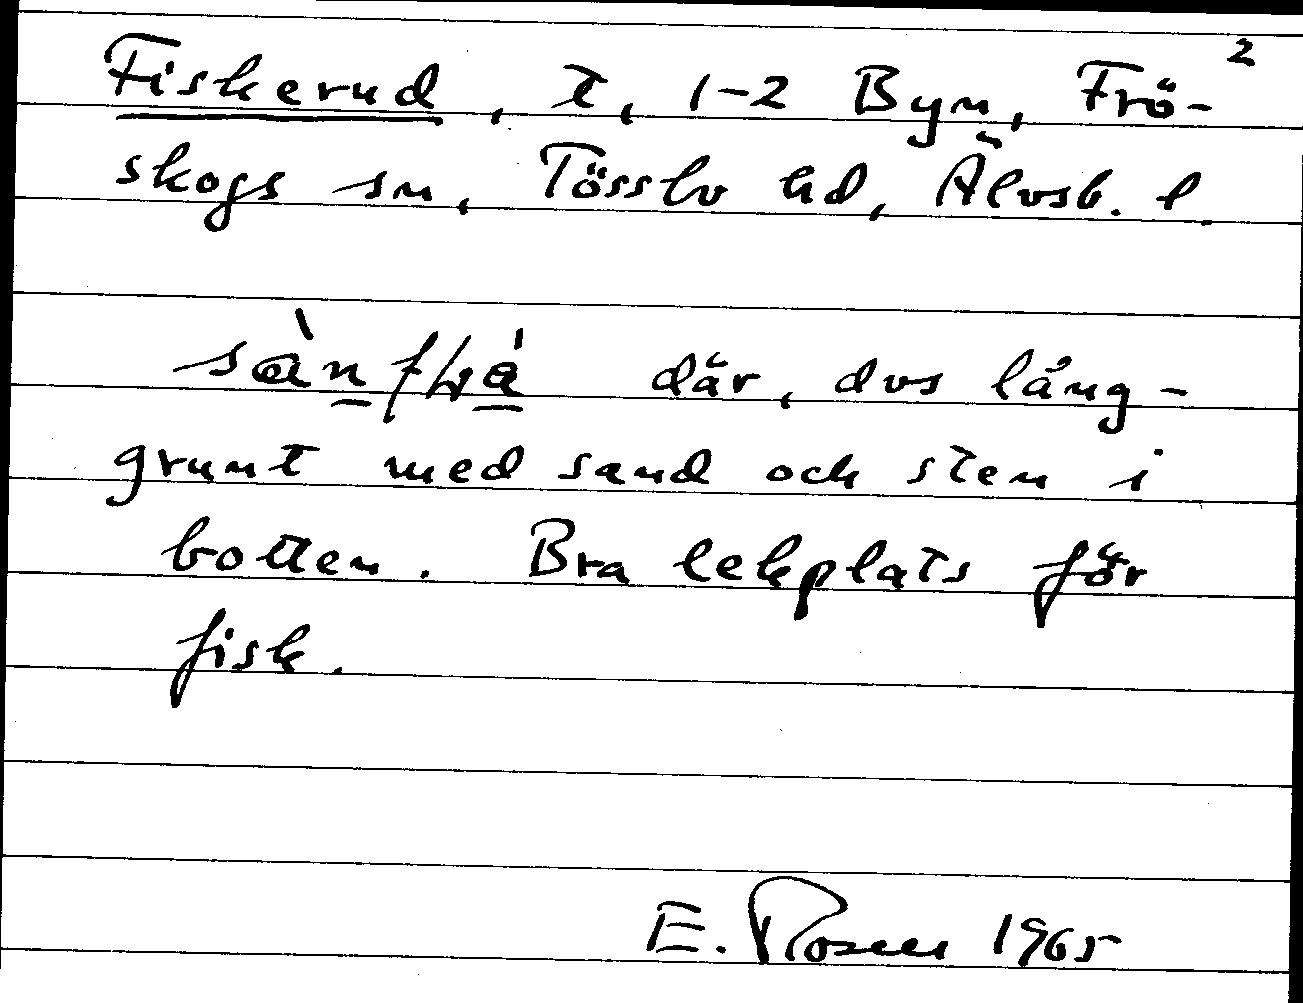 2
Fiskerud, t, 1-2 Byn, Frö-
skogs sn, Tösslo hd, Älvsb. l.
där, dvs lång-
grunt med sand och sten i
botten. Bra lekplats för
fisk.
E. Rosell 1965